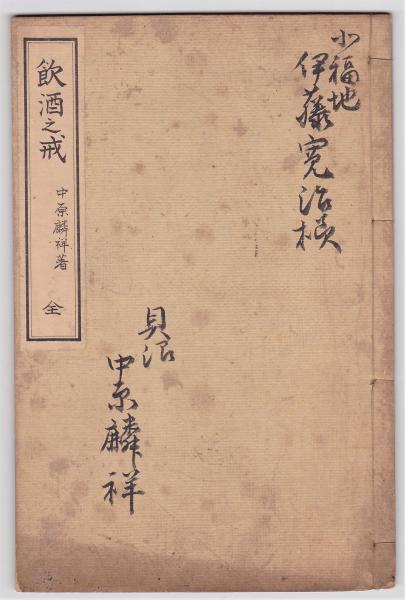 小福地
伊藤寛治様
貝沼
中原麟祥
飲酒之戒
中原麟祥著
全